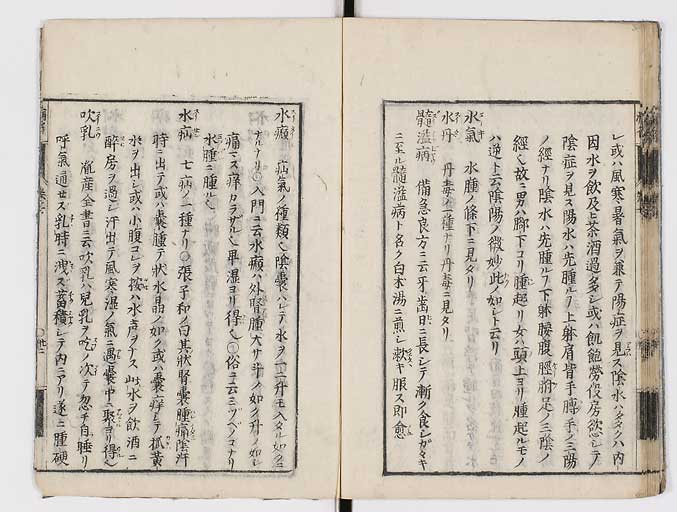 レ或ハ風寒暑氣ヲ兼テ陽症ヲ見ス陰水ハ多クハ内
因水ヲ飲及ビ茶酒過多シ或ハ飢飽勞役房慾シテ
陰症ヲ見ス陽水ハ先腫ルヽ上躰肩背手膊手ノ三陽
ノ經ナリ陰水ハ先腫ルヽ下躰腰腹脛胕足ノ三陰ノ
經也故ニ男ハ脚下ヨリ腫起リ女ハ頭上ヨリ腫起ルモノ
ハ逆ト云陰陽ノ微妙此ノ如シト云リ
水氣 水腫ノ條下ニ見タリ
水丹 丹毒ノ一種ナリ丹毒ニ見タリ
髓溢病 備急良方ニ云牙齒日ニ長シテ漸ク食シガタキ
ニ至ル髓溢病ト名ク白朮湯ニ煎シ漱キ服ス即愈
水㿗 疝氣ノ種類也陰囊ハレテ水ヲ入タル如ク
ナルナリ○入門ニ云水㿗ハ外腎腫大サ斗ノ如ク升ノ如シ
痛マス痒カラザル也卑濕ヨリ得也○俗ニ云
水腫ニ腫ル也
水疝 七疝ノ一種ナリ○張子和ノ曰其狀腎囊腫痛陰汗
時ニ出テ或ハ囊腫テ狀水晶ノ如ク或ハ囊痒シテ搔黃
水ヲ出シ或ハ小腹コレヲ按ハ水聲ヲナス此水ヲ飲酒ニ
醉房ヲ過シ汗出テ風寒濕ノ氣ニ遇囊中ニ聚ヨリ得也
吹乳 產全書ニ云吹乳ハ兒乳ヲ吃ノ次テ忽チ自睡リ
呼氣通セス乳時ニ洩ス蓄積シテ内ニアリ遂ニ腫硬